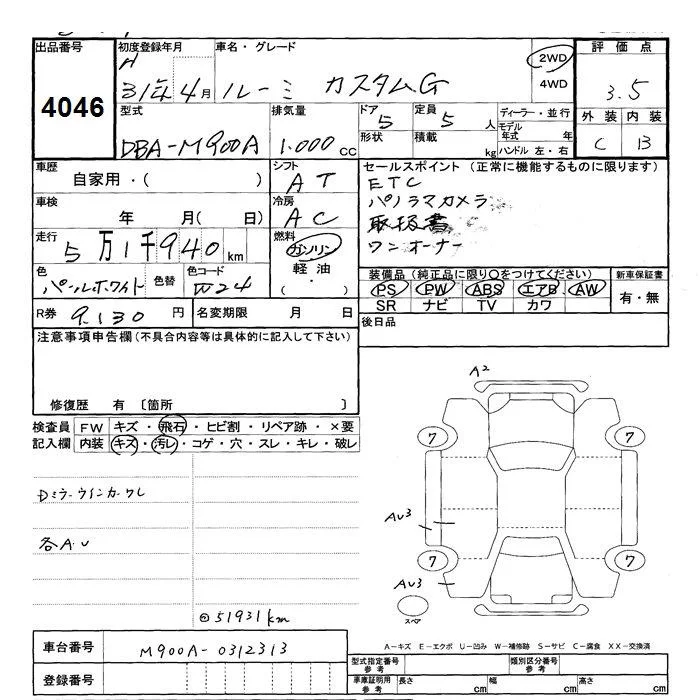 出品番号
4046
初度登録年月
H 31年 4月
車名・グレード
ルーミー カスタムG
2WD
4WD
評価点
3.5
外装 内装
C B
型式
DBA-M900A
排気量
1.000 cc
ドア
5
形状
定員
5 人
積載
kg
ディーラー・並行
モデル年式 年
ハンドル 左・右
車歴
自家用・( )
シフト
AT
車検
年 月( 日)
冷房
AC
走行
5万1千940 km
燃料
ガソリン
軽油
( ・ )
色
パールホワイト
色替
色コード
W24
セールスポイント (正常に機能するものに限ります)
ETC
パノラマカメラ
取扱書
ワンオーナー
装備品(純正品に限り○をつけてください)
PS PW ABS エアB AW
SR ナビ TV カワ
新車保証書
有・無
R券 9.130 円
名変期限 月 日
後日品
注意事項申告欄(不具合内容等は具体的に記入して下さい)
修復歴 有 〔箇所 〕
検査員 FW キズ・飛石・ヒビ割・リペア跡・×要
記入欄 内装 キズ・汚レ・コゲ・穴・スレ・キレ・破レ
Dミラーウインカーワレ
各A.U
51931km
A2
7
7
AU3
7
7
AU3
スペア
A-キズ E-エクボ U-凹み W-補修跡 S-サビ C-腐食 XX-交換済
車台番号 M900A-0312313
登録番号
型式指定番号 参考
類別区分番号 参考
車庫証明用 参考
長さ cm
幅 cm
高さ cm